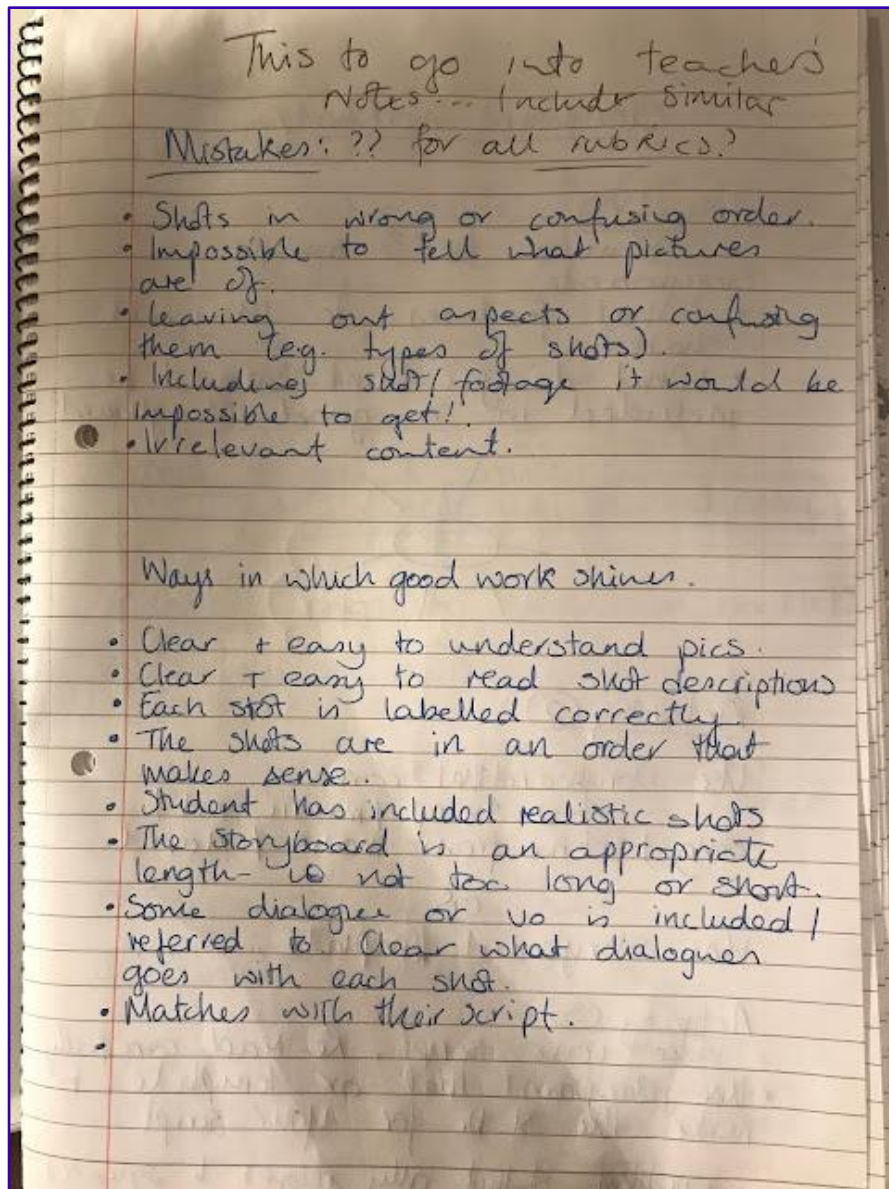 This to go into teachers
Notes... Include similar
Mistakes: ?? for all rubrics?
• Shots in wrong or confusing order.
• Impossible to tell what pictures
are of.
• Leaving out aspects or confusing
them (e.g. types of shots).
• Including shot/footage it would be
impossible to get!
• Irrelevant content.
Ways in which good work shines.
• Clear + easy to understand pics.
• Clear + easy to read shot descriptions
• Each shot is labelled correctly.
• The shots are in an order that
makes sense.
• Student has included realistic shots
• The storyboard is an appropriate
length - is not too long or short.
• Some dialogue or vo is included/
referred to Clear what dialogues
goes with each shot.
• Matches with their script.
•